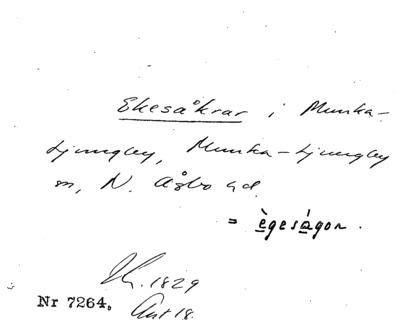 Ekesåkrar i Munka-
Ljungby, Munka-Ljungby
sn, N. Åsbo hd.
= ègeságor.
1829
Nr 7264. Akt 18.